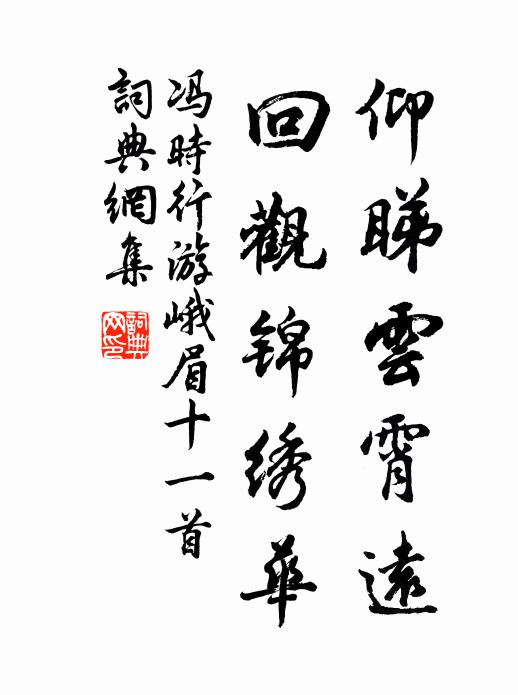 仰睇雲霄遠
回觀锦绣華
冯時行游峨眉十一首
詞典網集
詞典網印